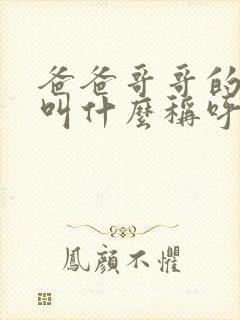 爸爸哥哥的
叫什麼稱呼
鳳顏不懼